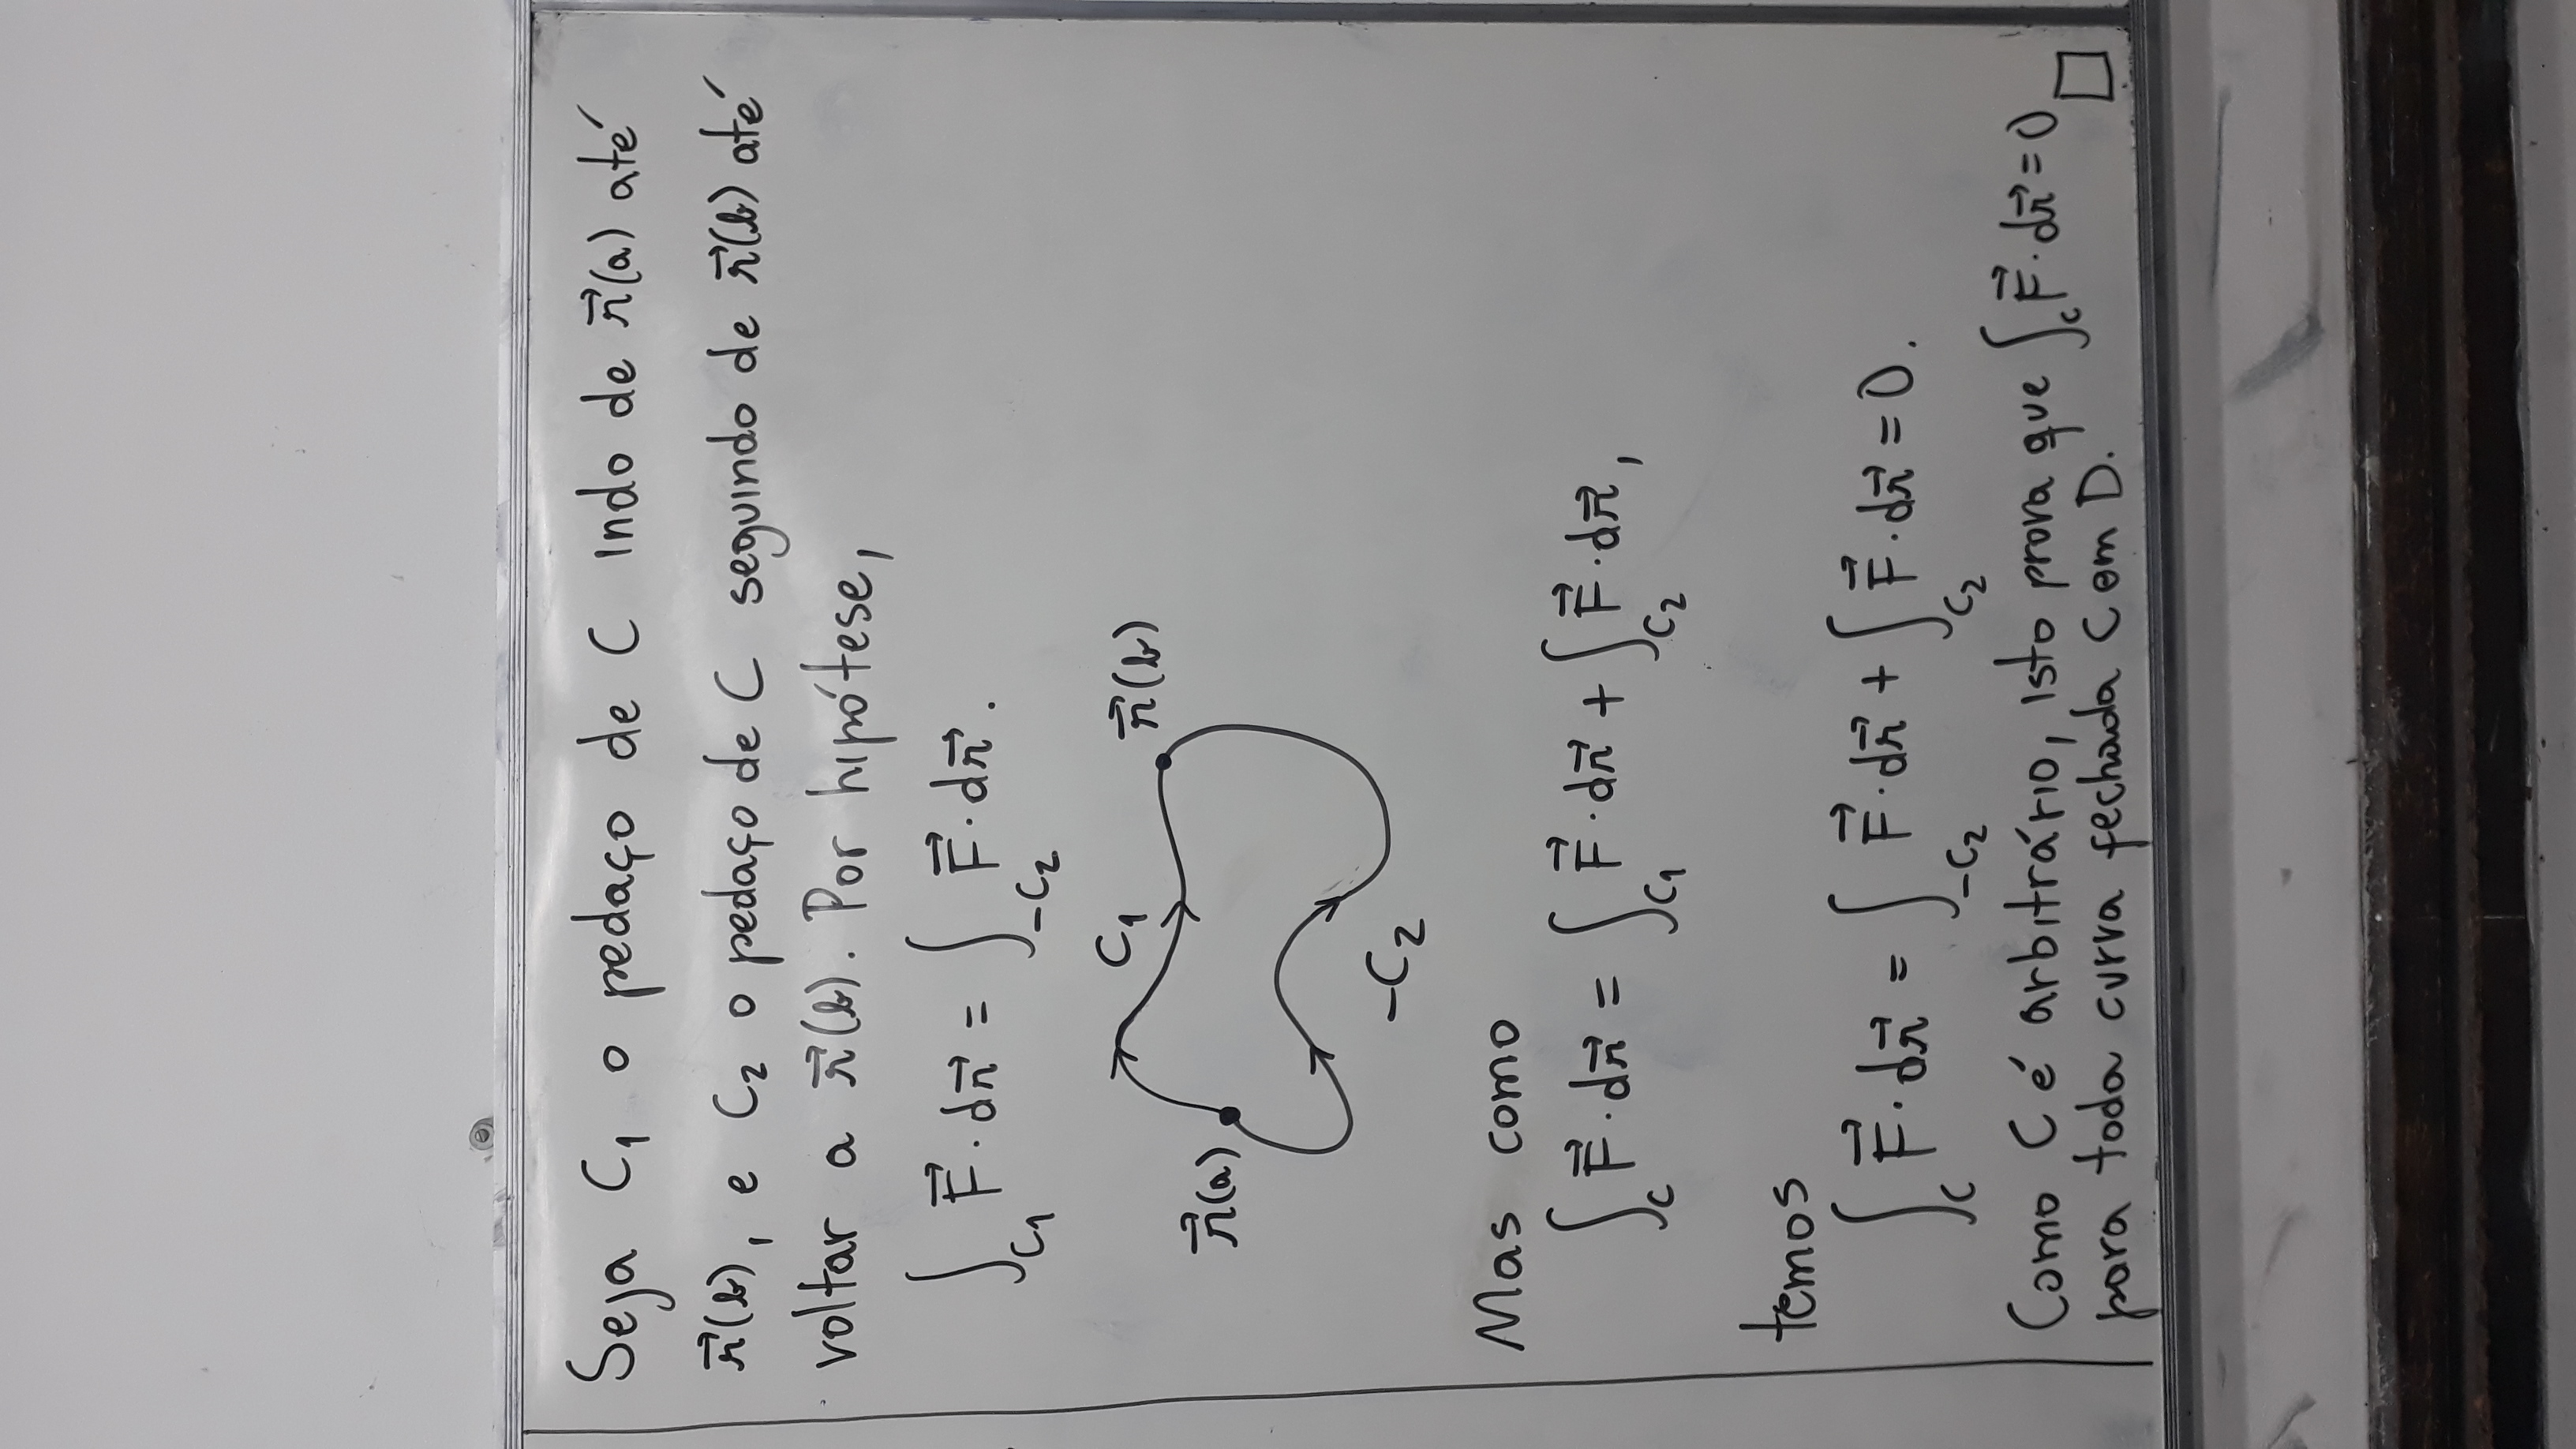 Seja C₁ o pedaço de C indo de r⃗(a) até
r⃗(b), e C₂ o pedaço de C seguindo de r⃗(b) até
voltar a r⃗(b). Por hipótese,
∫_{C₁} F⃗ · dr⃗ = ∫_{-C₂} F⃗ · dr⃗.
C₁
r⃗(b)
r⃗(a)
-C₂
Mas como
∫_C F⃗ · dr⃗ = ∫_{C₁} F⃗ · dr⃗ + ∫_{C₂} F⃗ · dr⃗,
temos
∫_C F⃗ · dr⃗ = ∫_{-C₂} F⃗ · dr⃗ + ∫_{C₂} F⃗ · dr⃗ = 0.
Como C é arbitrário, isto prova que ∫_C F⃗ · dr⃗ = 0
para toda curva fechada C em D. □